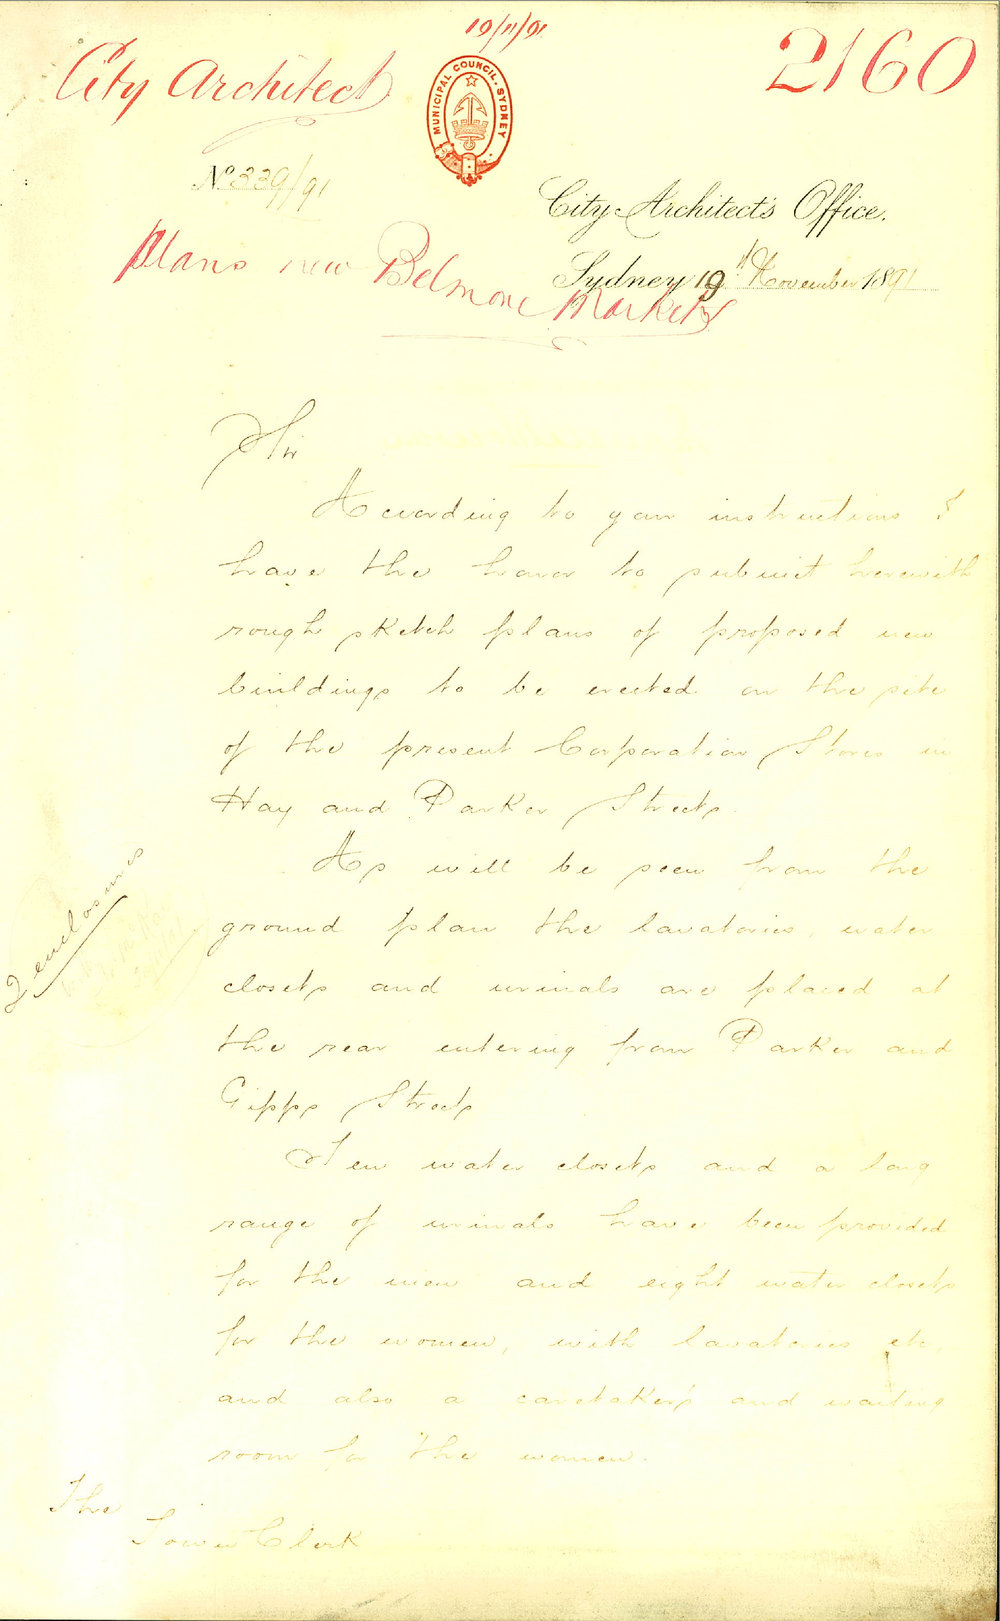 19/11/91
City Architect
2160
MUNICIPAL COUNCIL. SYDNEY
No 339/91
City Architect's Office.
Plans new Belmore Markets
Sydney 19th November 1891
Sir
According to your instructions I
have the honor to submit herewith
rough sketch plans of proposed new
buildings to be erected on the site
of the present Corporation Stores in
Hay and Parker Streets.
As will be seen from the
ground plan the lavatories, water
closets and urinals are placed at
the rear entering from Parker and
Gipps Streets
2 enclosures
Ten water closets and a long
range of urinals have been provided
for the men and eight water closets
for the women, with lavatories etc,
and also a caretakers and waiting
room for the women.
The
Town Clerk